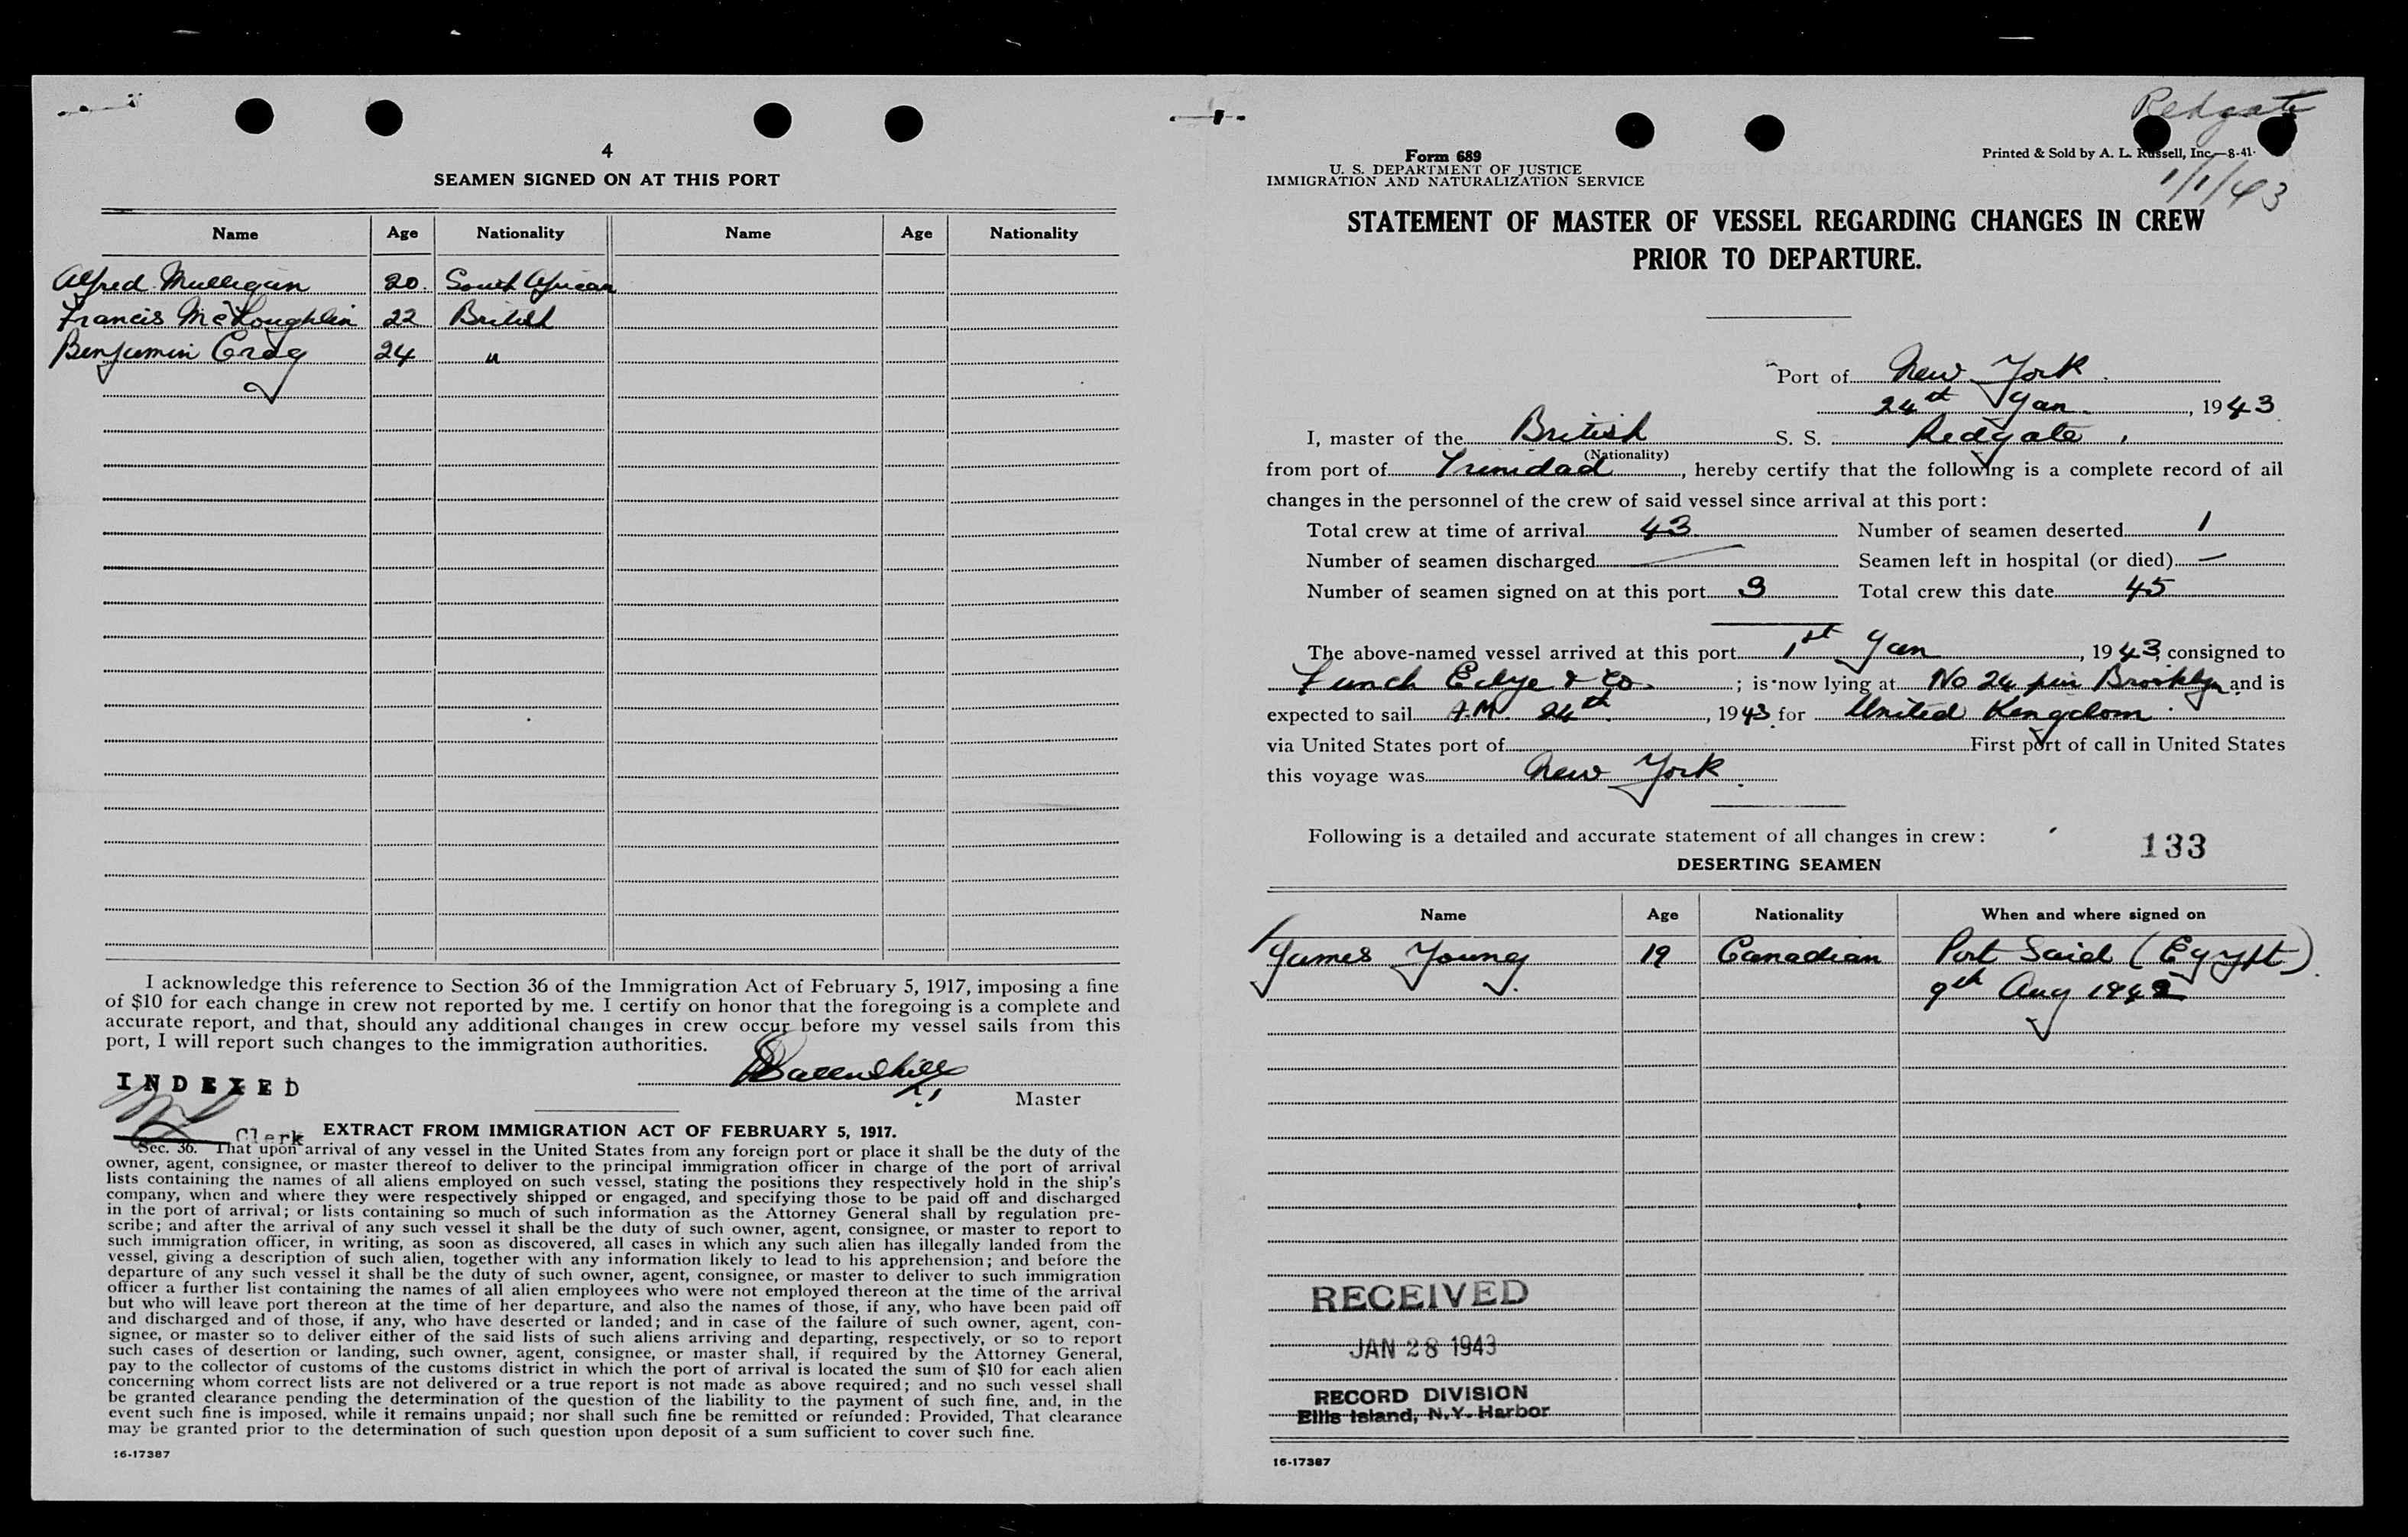 4
SEAMEN SIGNED ON AT THIS PORT
Name Age Nationality Name Age Nationality
Alfred Mulligan 20. South African
Francis McLoughlin 22 British
Benjamin 24 "
I acknowledge this reference to Section 36 of the Immigration Act of February 5, 1917, imposing a fine
of $10 for each change in crew not reported by me. I certify on honor that the foregoing is a complete and
accurate report, and that, should any additional changes in crew occur before my vessel sails from this
port, I will report such changes to the immigration authorities.
INDEXED
Master
Clerk
EXTRACT FROM IMMIGRATION ACT OF FEBRUARY 5, 1917.
Sec. 36. That upon arrival of any vessel in the United States from any foreign port or place it shall be the duty of the
owner, agent, consignee, or master thereof to deliver to the principal immigration officer in charge of the port of arrival
lists containing the names of all aliens employed on such vessel, stating the positions they respectively hold in the ship's
company, when and where they were respectively shipped or engaged, and specifying those to be paid off and discharged
in the port of arrival; or lists containing so much of such information as the Attorney General shall by regulation pre-
scribe; and after the arrival of any such vessel it shall be the duty of such owner, agent, consignee, or master to report to
such immigration officer, in writing, as soon as discovered, all cases in which any such alien has illegally landed from the
vessel, giving a description of such alien, together with any information likely to lead to his apprehension; and before the
departure of any such vessel it shall be the duty of such owner, agent, consignee, or master to deliver to such immigration
officer a further list containing the names of all alien employees who were not employed thereon at the time of the arrival
but who will leave port thereon at the time of her departure, and also the names of those, if any, who have been paid off
and discharged and of those, if any, who have deserted or landed; and in case of the failure of such owner, agent, con-
signee, or master so to deliver either of the said lists of such aliens arriving and departing, respectively, or so to report
such cases of desertion or landing, such owner, agent, consignee, or master shall, if required by the Attorney General,
pay to the collector of customs of the customs district in which the port of arrival is located the sum of $10 for each alien
concerning whom correct lists are not delivered or a true report is not made as above required; and no such vessel shall
be granted clearance pending the determination of the question of the liability to the payment of such fine, and, in the
event such fine is imposed, while it remains unpaid; nor shall such fine be remitted or refunded: Provided, That clearance
may be granted prior to the determination of such question upon deposit of a sum sufficient to cover such fine.
16-17387
Redgate
Form 689
U. S. DEPARTMENT OF JUSTICE
IMMIGRATION AND NATURALIZATION SERVICE
Printed & Sold by A. L. Russell, Inc.—8-41.
1/1/43
STATEMENT OF MASTER OF VESSEL REGARDING CHANGES IN CREW
PRIOR TO DEPARTURE.
Port of New York.
24th Jan., 1943
I, master of the British S. S. Redgate,
(Nationality)
from port of Trinidad, hereby certify that the following is a complete record of all
changes in the personnel of the crew of said vessel since arrival at this port:
Total crew at time of arrival 43 Number of seamen deserted 1
Number of seamen discharged — Seamen left in hospital (or died) —
Number of seamen signed on at this port 3 Total crew this date 45
The above-named vessel arrived at this port 1st Jan, 1943, consigned to
Funch Edye & Co.; is now lying at No 24 pier Brooklyn and is
expected to sail A.M. 24th, 1943 for United Kingdom.
via United States port of First port of call in United States
this voyage was New York.
Following is a detailed and accurate statement of all changes in crew:
133
DESERTING SEAMEN
Name Age Nationality When and where signed on
James Young 19 Canadian Port Said (Egypt)
9th Aug 1942
RECEIVED
JAN 28 1943
RECORD DIVISION
Ellis Island, N.Y. Harbor
16-17387